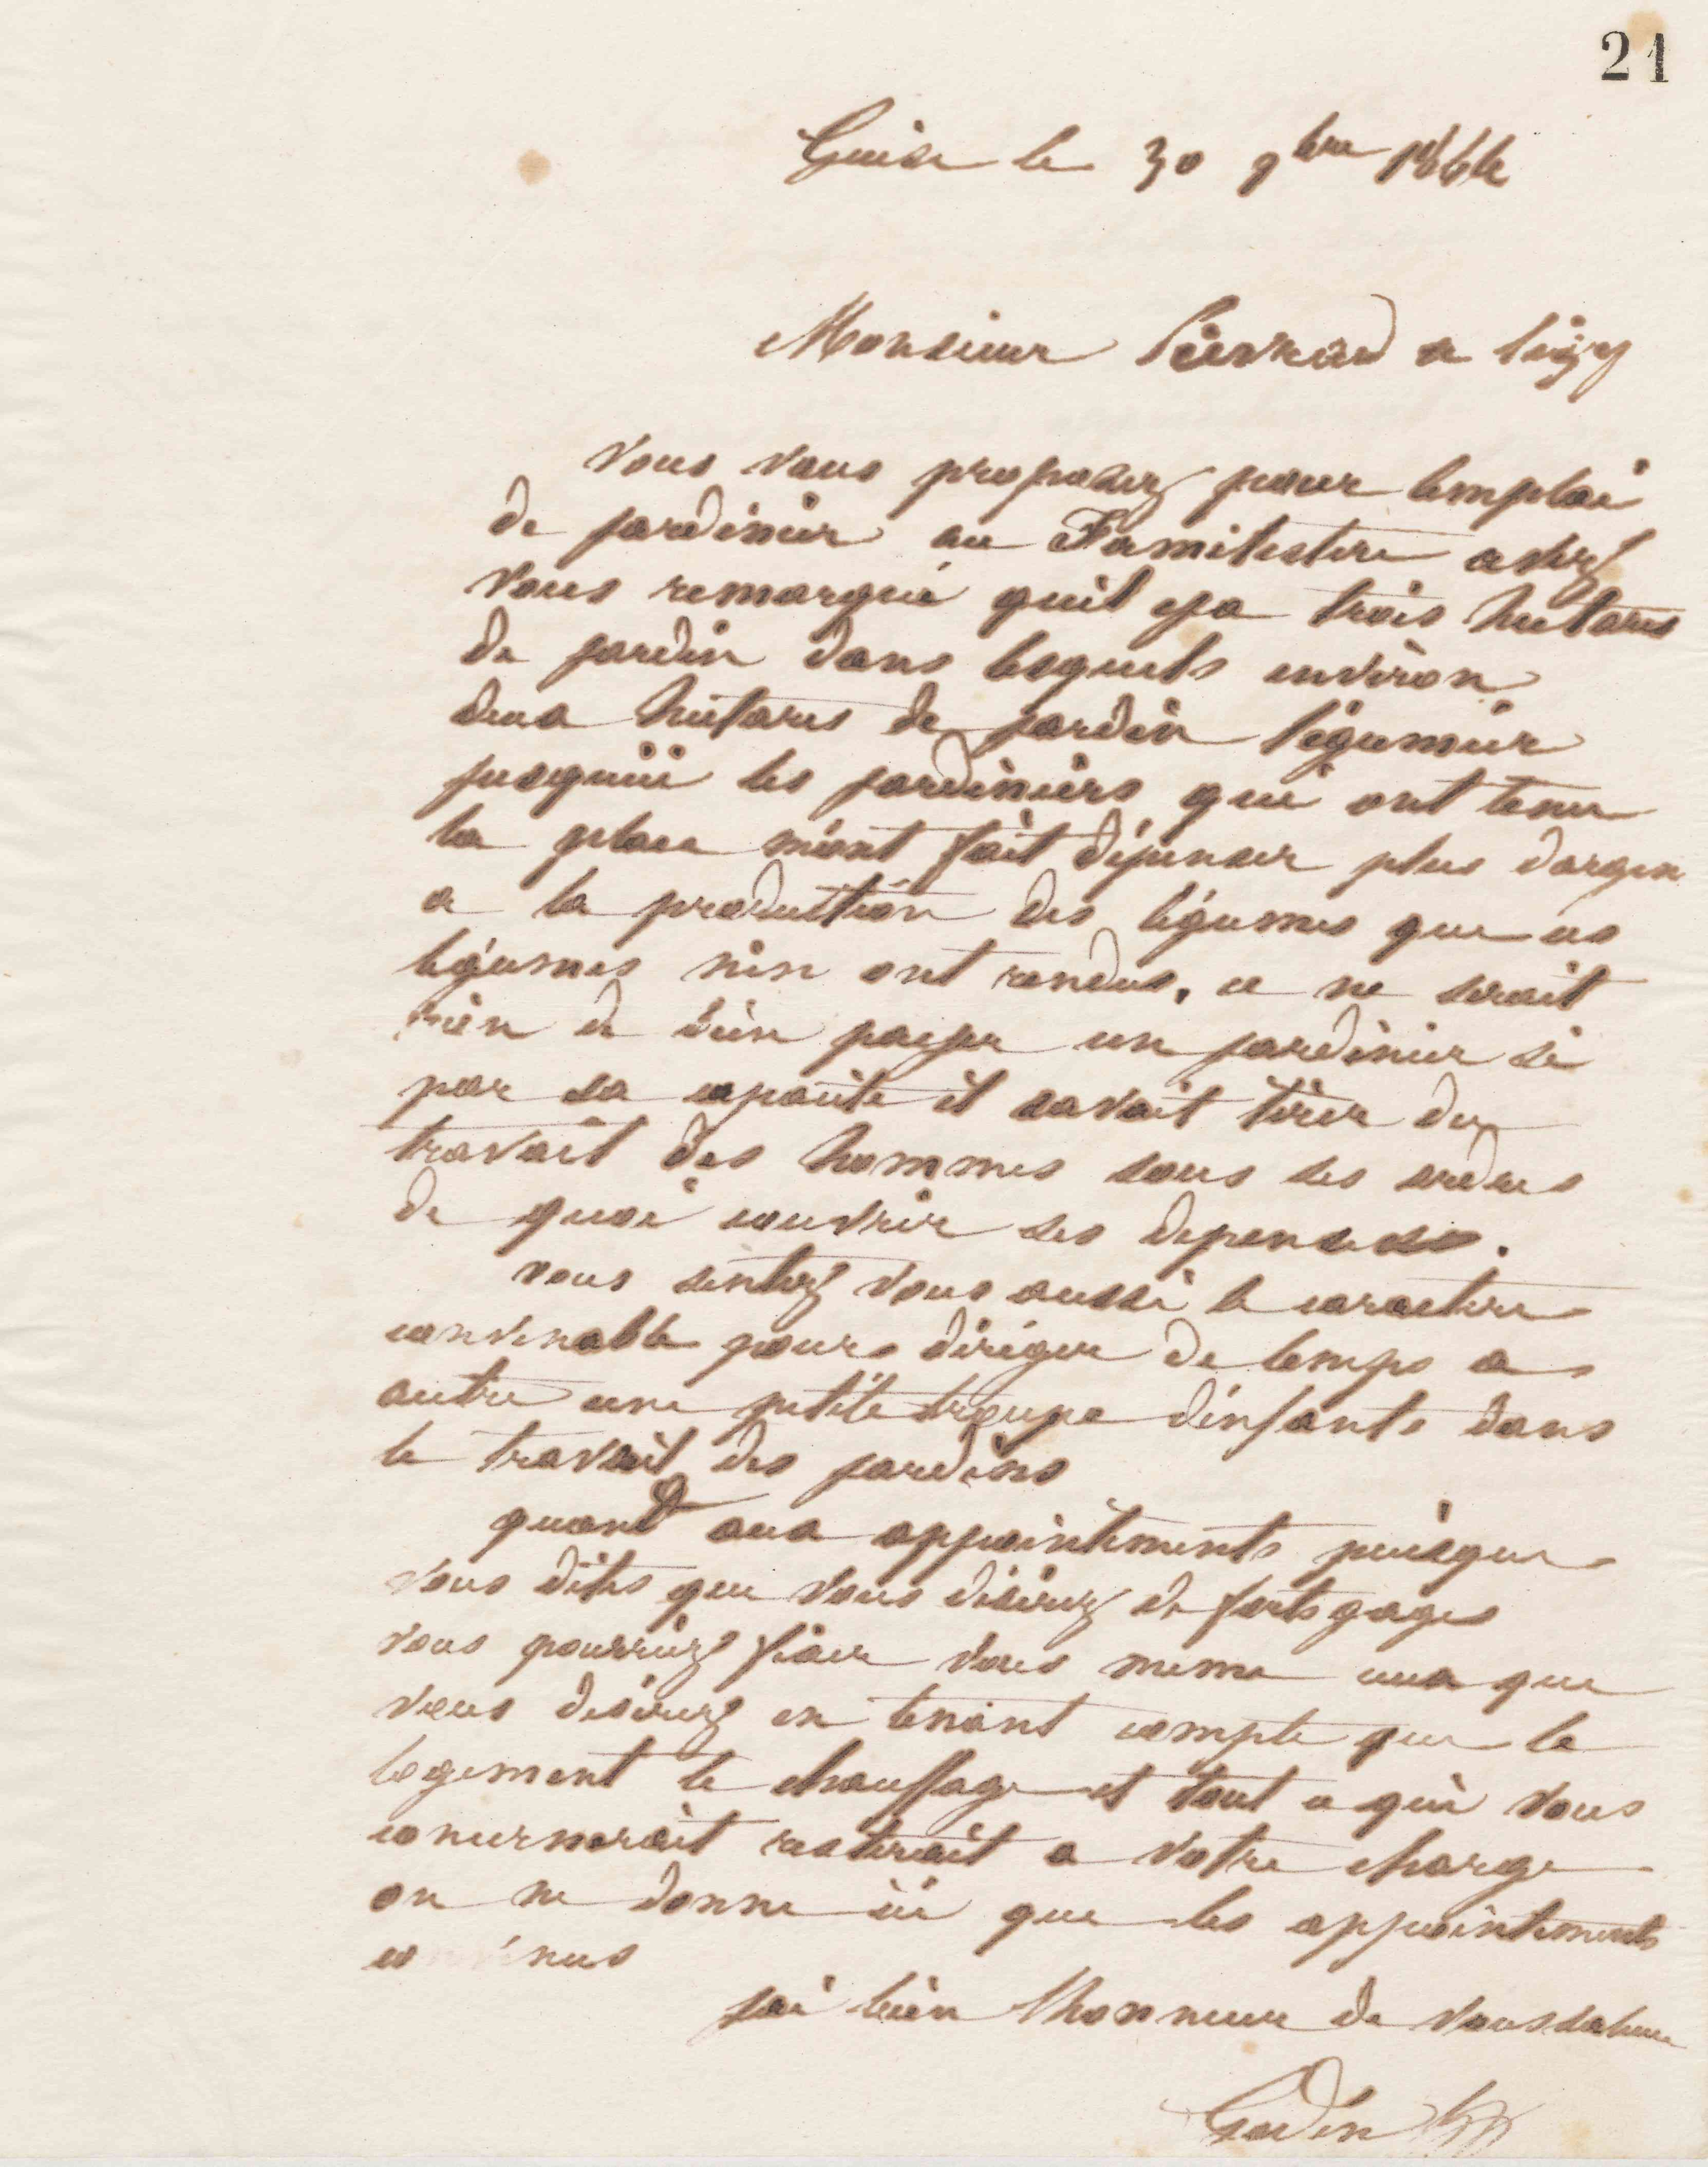 21
Guise le 30 9bre 1866
Monsieur a
Vous vous proposez pour lemploi
de jardinier au Familistere avez
vous remarqué quil ya trois hectares
de jardin dans lesquels environ
deux hectares de jardin légumier
jusquici les jardiniers qui ont tenu
la place m'ont fait dépenser plus dargen
a la production des légumes que ces
légumes n'en ont rendus. ce ne serait
rien de bien payer un jardinier si
par sa capacité il savait tirer du
travail des hommes sous ses ordres
de quoi couvrir ses depenses.
vous sentez vous aussi le caractere
convenable pour diriger de temps a
autre une petite troupe d'enfants dans
le travail des jardins
quand aux appointements puisque
vous dites que vous désirez de forts gages
vous pourriez fixer vous meme ceux que
vous desirez en tenant compte que le
logement le chauffage et tout ce qui vous
concernerait resterait a votre charge
on ne donne ici que les appointements
jai bien lhonneur de vous saluer
Godin